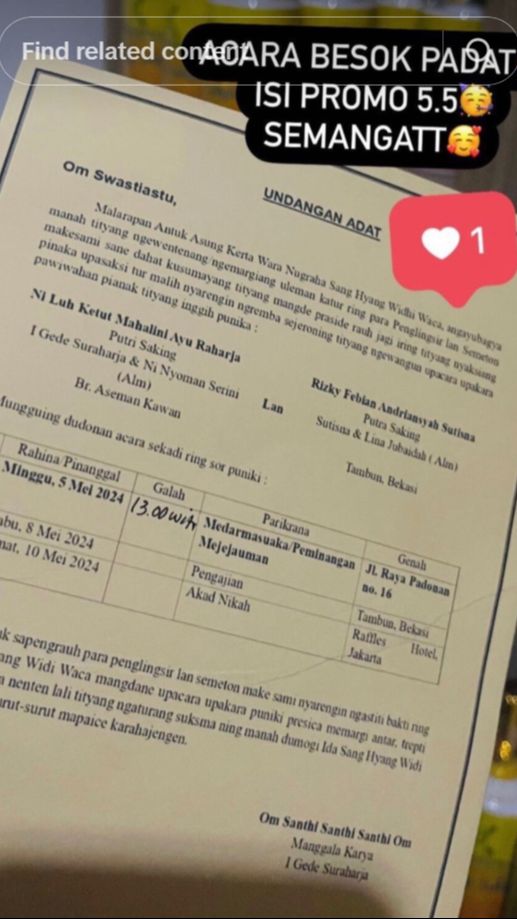 Find related content
ACARA BESOK PADAT
ISI PROMO 5.5🥳
SEMANGATT🥰
1
UNDANGAN ADAT
Om Swastiastu,
Malarapan Antuk Asung Kerta Wara Nugraha Sang Hyang Widhi Waca, angayubagya
manah tityang ngewentenang/ngemargiang uleman katur ring para Penglingsir lan Semeton
makesami sane dahat kusumayang tityang mangde praside rauh jagi iring tityang nyaksiang
pinaka upasaksi tur malih nyarengin ngremba sejeroning tityang ngewangun upacara upakara
pawiwahan pianak tityang inggih punika :
Ni Luh Ketut Mahalini Ayu Raharja
Putri Saking
I Gede Suraharja & Ni Nyoman Serini
(Alm)
Br. Aseman Kawan
Lan
Rizky Febian Andriansyah Sutisna
Putra Saking
Sutisna & Lina Jubaidah ( Alm)
Tambun, Bekasi
Mungguing dudonan acara sekadi ring sor puniki :
Rahina/Pinanggal Galah Parikrana Genah
Minggu, 5 Mei 2024 13.00 wita Medarmasuaka/Peminangan Jl. Raya Padonan
Mejejauman no. 16
abu, 8 Mei 2024 Pengajian Tambun, Bekasi
mat, 10 Mei 2024 Akad Nikah Raffles Hotel,
Jakarta
uk sapengrauh para penglingsir lan semeton make sami nyarengin ngastiti bakti ring
ang Widi Waca mangdane upacara upakara puniki presica memargi antar, trepti
n nenten lali tityang ngaturang suksma ning manah dumogi Ida Sang Hyang Widi
urut-surut mapaice karahajengen.
Om Santhi Santhi Santhi Om
Manggala Karya
I Gede Suraharja